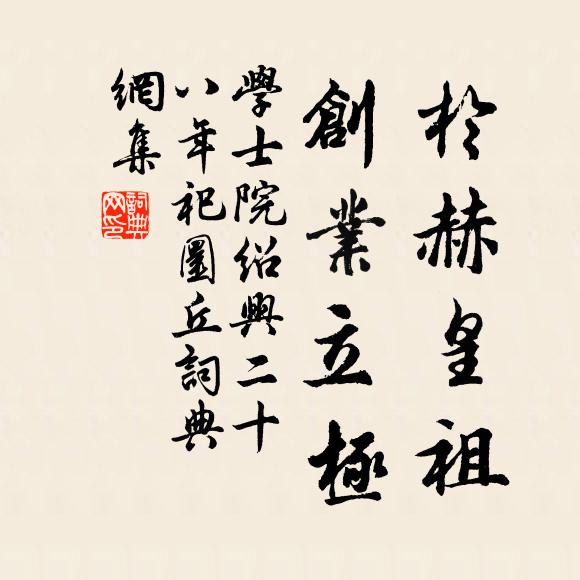 於赫皇祖
創業立極
學士院紹興二十
八年祀圜丘詞典
網集
詞典
网印